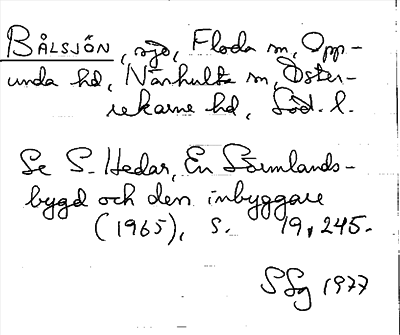 BÅLSJÖN, sjö, Floda sn, Opp-
unda hd, Närhulta sn, Öster-
rekarne hd, Söd. l.
Se S. Hedar, En Sörmlands-
bygd och den inbyggare
(1965), s. 19, 245.
SSg 1977